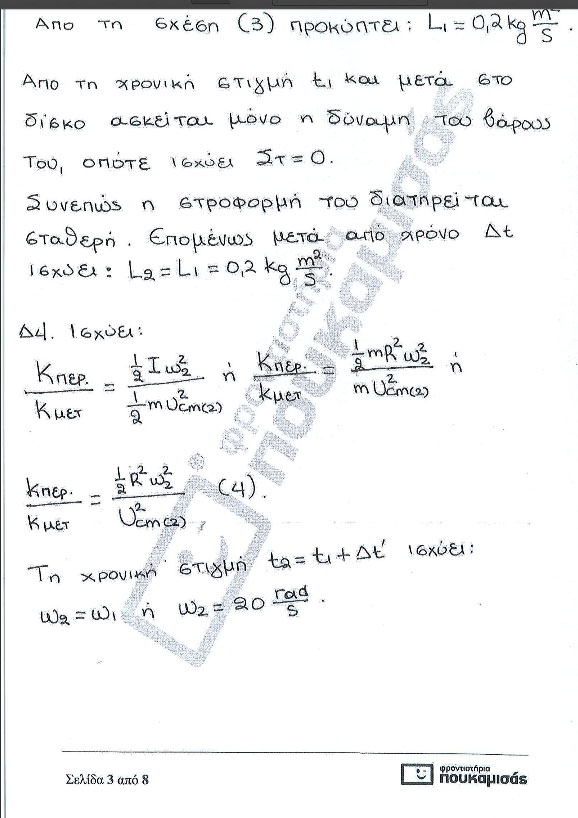 Απο τη σχέση (3) προκύπτει: L₁ = 0,2 kg m²/s.
Απο τη χρονική στιγμή t₁ και μετά στο
δίσκο ασκείται μόνο η δύναμη του βάρους
του, οπότε ισχύει Στ = 0.
Συνεπώς η στροφορμή του διατηρείται
σταθερή. Επομένως μετά απο χρόνο Δt
ισχύει: L₂ = L₁ = 0,2 kg m²/s.
Δ4. Ισχύει:
Κπερ./Κμετ = (½ I ω₂²)/(½ m υ²cm(2)) ή Κπερ./Κμετ = (½ m R² ω₂²)/(m υ²cm(2)) ή
Κπερ./Κμετ = (½ R² ω₂²)/(υ²cm(2)) (4).
Τη χρονική στιγμή t₂ = t₁ + Δt' ισχύει:
ω₂ = ω₁ ή ω₂ = 20 rad/s.
φροντιστήρια
πουκαμισάς
®
Σελίδα 3 από 8
φροντιστήρια
πουκαμισάς